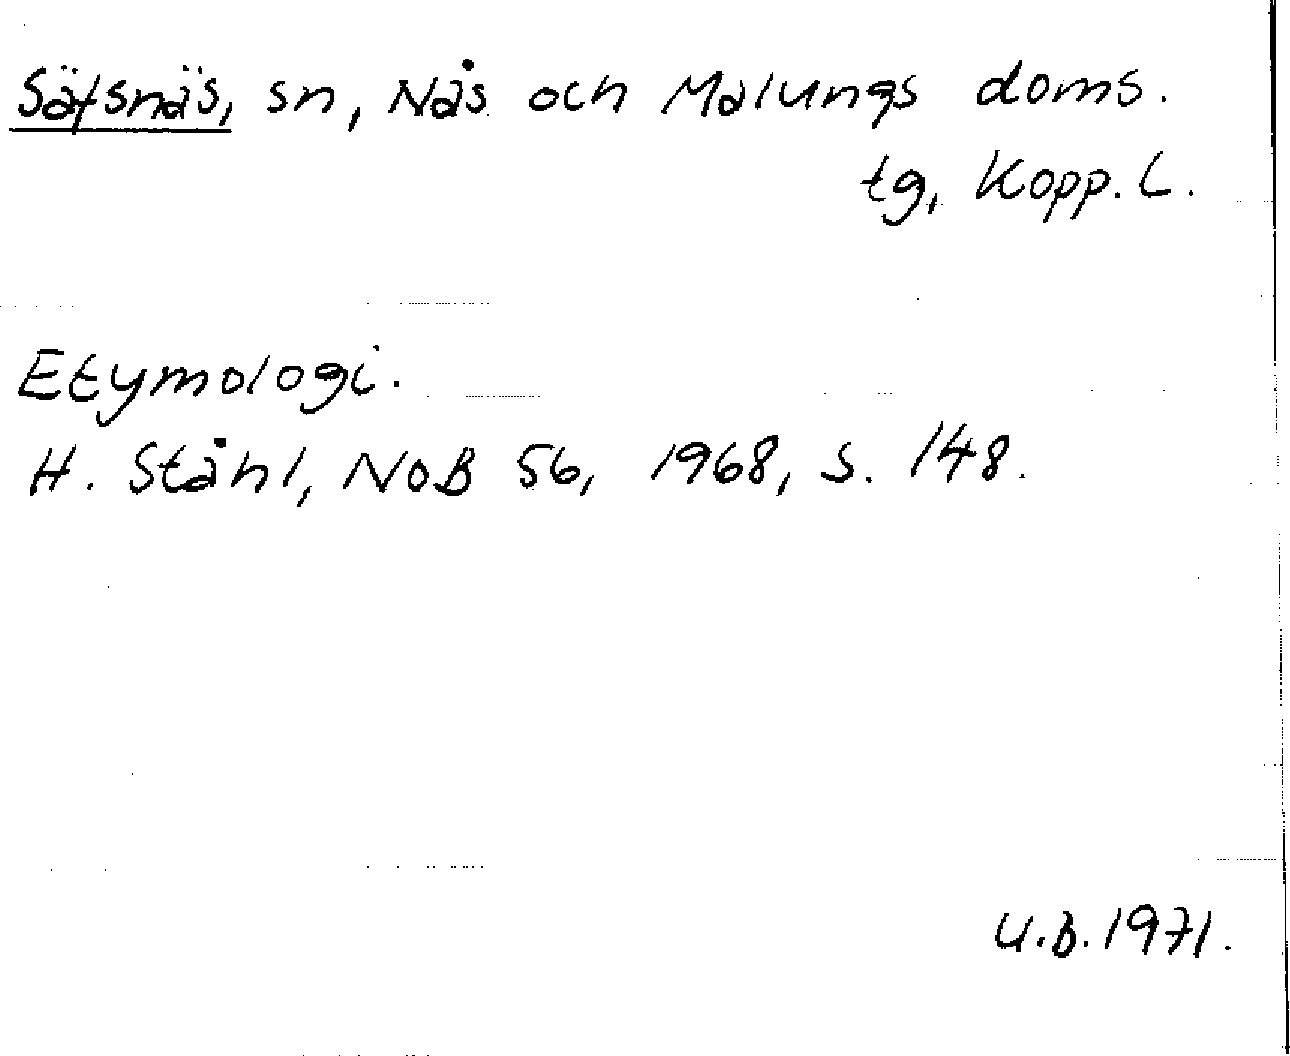 Säfsnäs, sn, Nås och Malungs doms.
tg, Kopp. L.
Etymologi.
H. Ståhl, NoB 56, 1968, s. 148.
U.B. 1971.